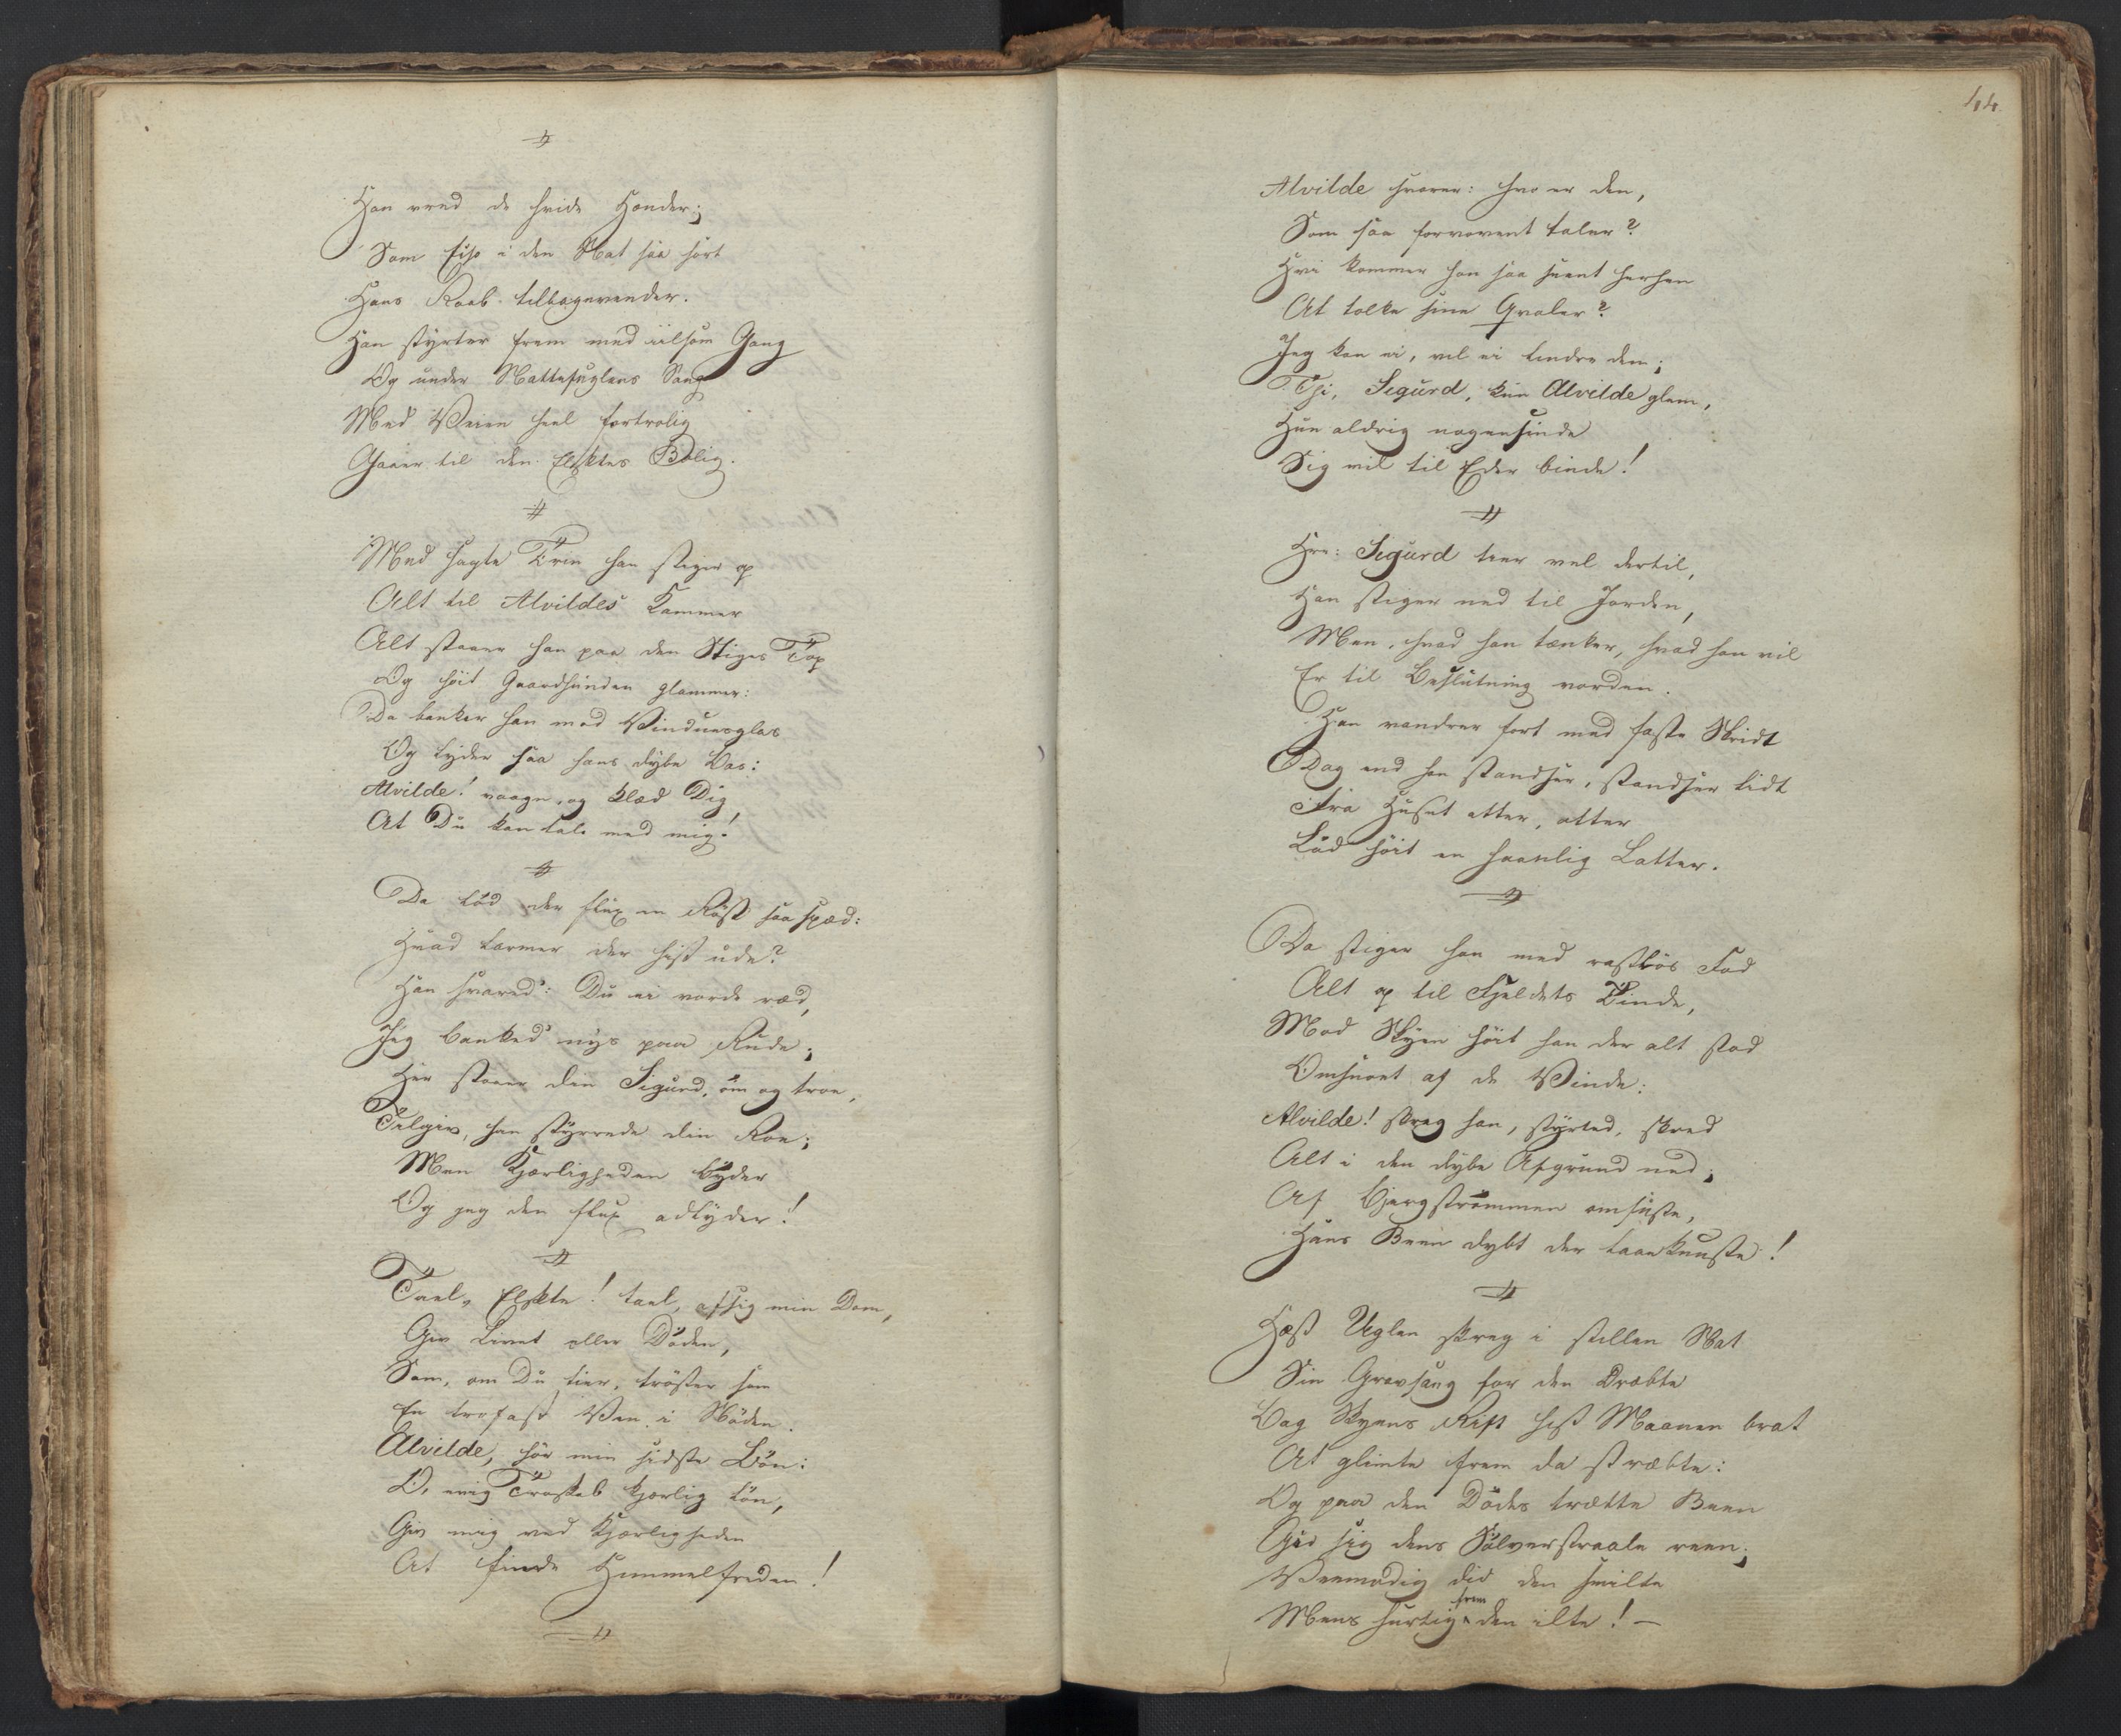 #
Han vred de hvide Hænder;
Som Echo i den Nat saa sort
Hans Raab tilbagevender.
Han styrter frem med iilsom Gang
Og under Nattefuglens Sang
Med Veien heel fortrolig
Gaaer til den Elsktes Bolig.
#
Med sagte Trin han stiger op
Alt til Alvildes Kammer
Alt staaer han paa den Stiges Top
Og høit Gaardhunden glammer:
Da banker han mod Vinduesglas
Og lyder saa hans dybe Bas:
Alvilde! vaagn, og klæd Dig
At Du kan tale med mig!
#
Da lød der flux en Røst saa spæd:
Hvad larmer der hist ude?
Han svared': Du ei vorde ræd,
Jeg banked' nys paa Rude;
Her staaer din Sigurd, øm og troe,
Tilgiv, han styrrede din Roe;
Men Kjærligheden byder
Og jeg den flux adlyder!
#
Tael, Elskte! tael, afsig min Dom,
Giv Livet eller Døden,
Som, om Du tier, trøster som
En trofast Ven i Nøden.
Alvilde, hør min sidste Bøn:
O, miig Troskab kjærlig løn,
Giv mig ved Kjærligheden
At finde Himmelfreden!
#
144
Alvilde svarer: hvo er den,
Som saa forvovent taler?
Hvi kommer han saa seent herhen
At tolke sine Qvaler?
Jeg kan ei, vil ei lindre dem;
Thi, Sigurd, kun Alvilde glem,
Hun aldrig nogensinde
Sig vil til Eder binde!
#
Hrr: Sigurd tier vel dertil,
Han stiger ned til Jorden,
Men, hvad han tænker, hvad han vil
Er til Beslutning vorden.
Han vandrer fort med faste Skridt
Dog end han standser, standser tidt
Fra Huset atter, atter
Lød høit en haanlig Latter.
#
Da stiger han med rastløs Fod
Alt op til Fjeldets Tinde,
Mod Skyen høit han der alt stod
Omsuset af de Vinde:
Alvilde! skreg han, styrted, skred
Alt i den dybe Afgrund ned;
Af Bjergstrømmen omsuste,
Hans Been dybt der laae knuste!
#
Hæst Uglen skreg i stillen Nat
Sin Gravsang for den Dræbte
Bag Skyens Rift hist Maanen brat
At glimte frem da stræbte:
Og paa den Dødes trætte Been
Gød sig dens Sølverstraale reen;
Veemodig did den smilte
Mens hurtig frem den ilte! —